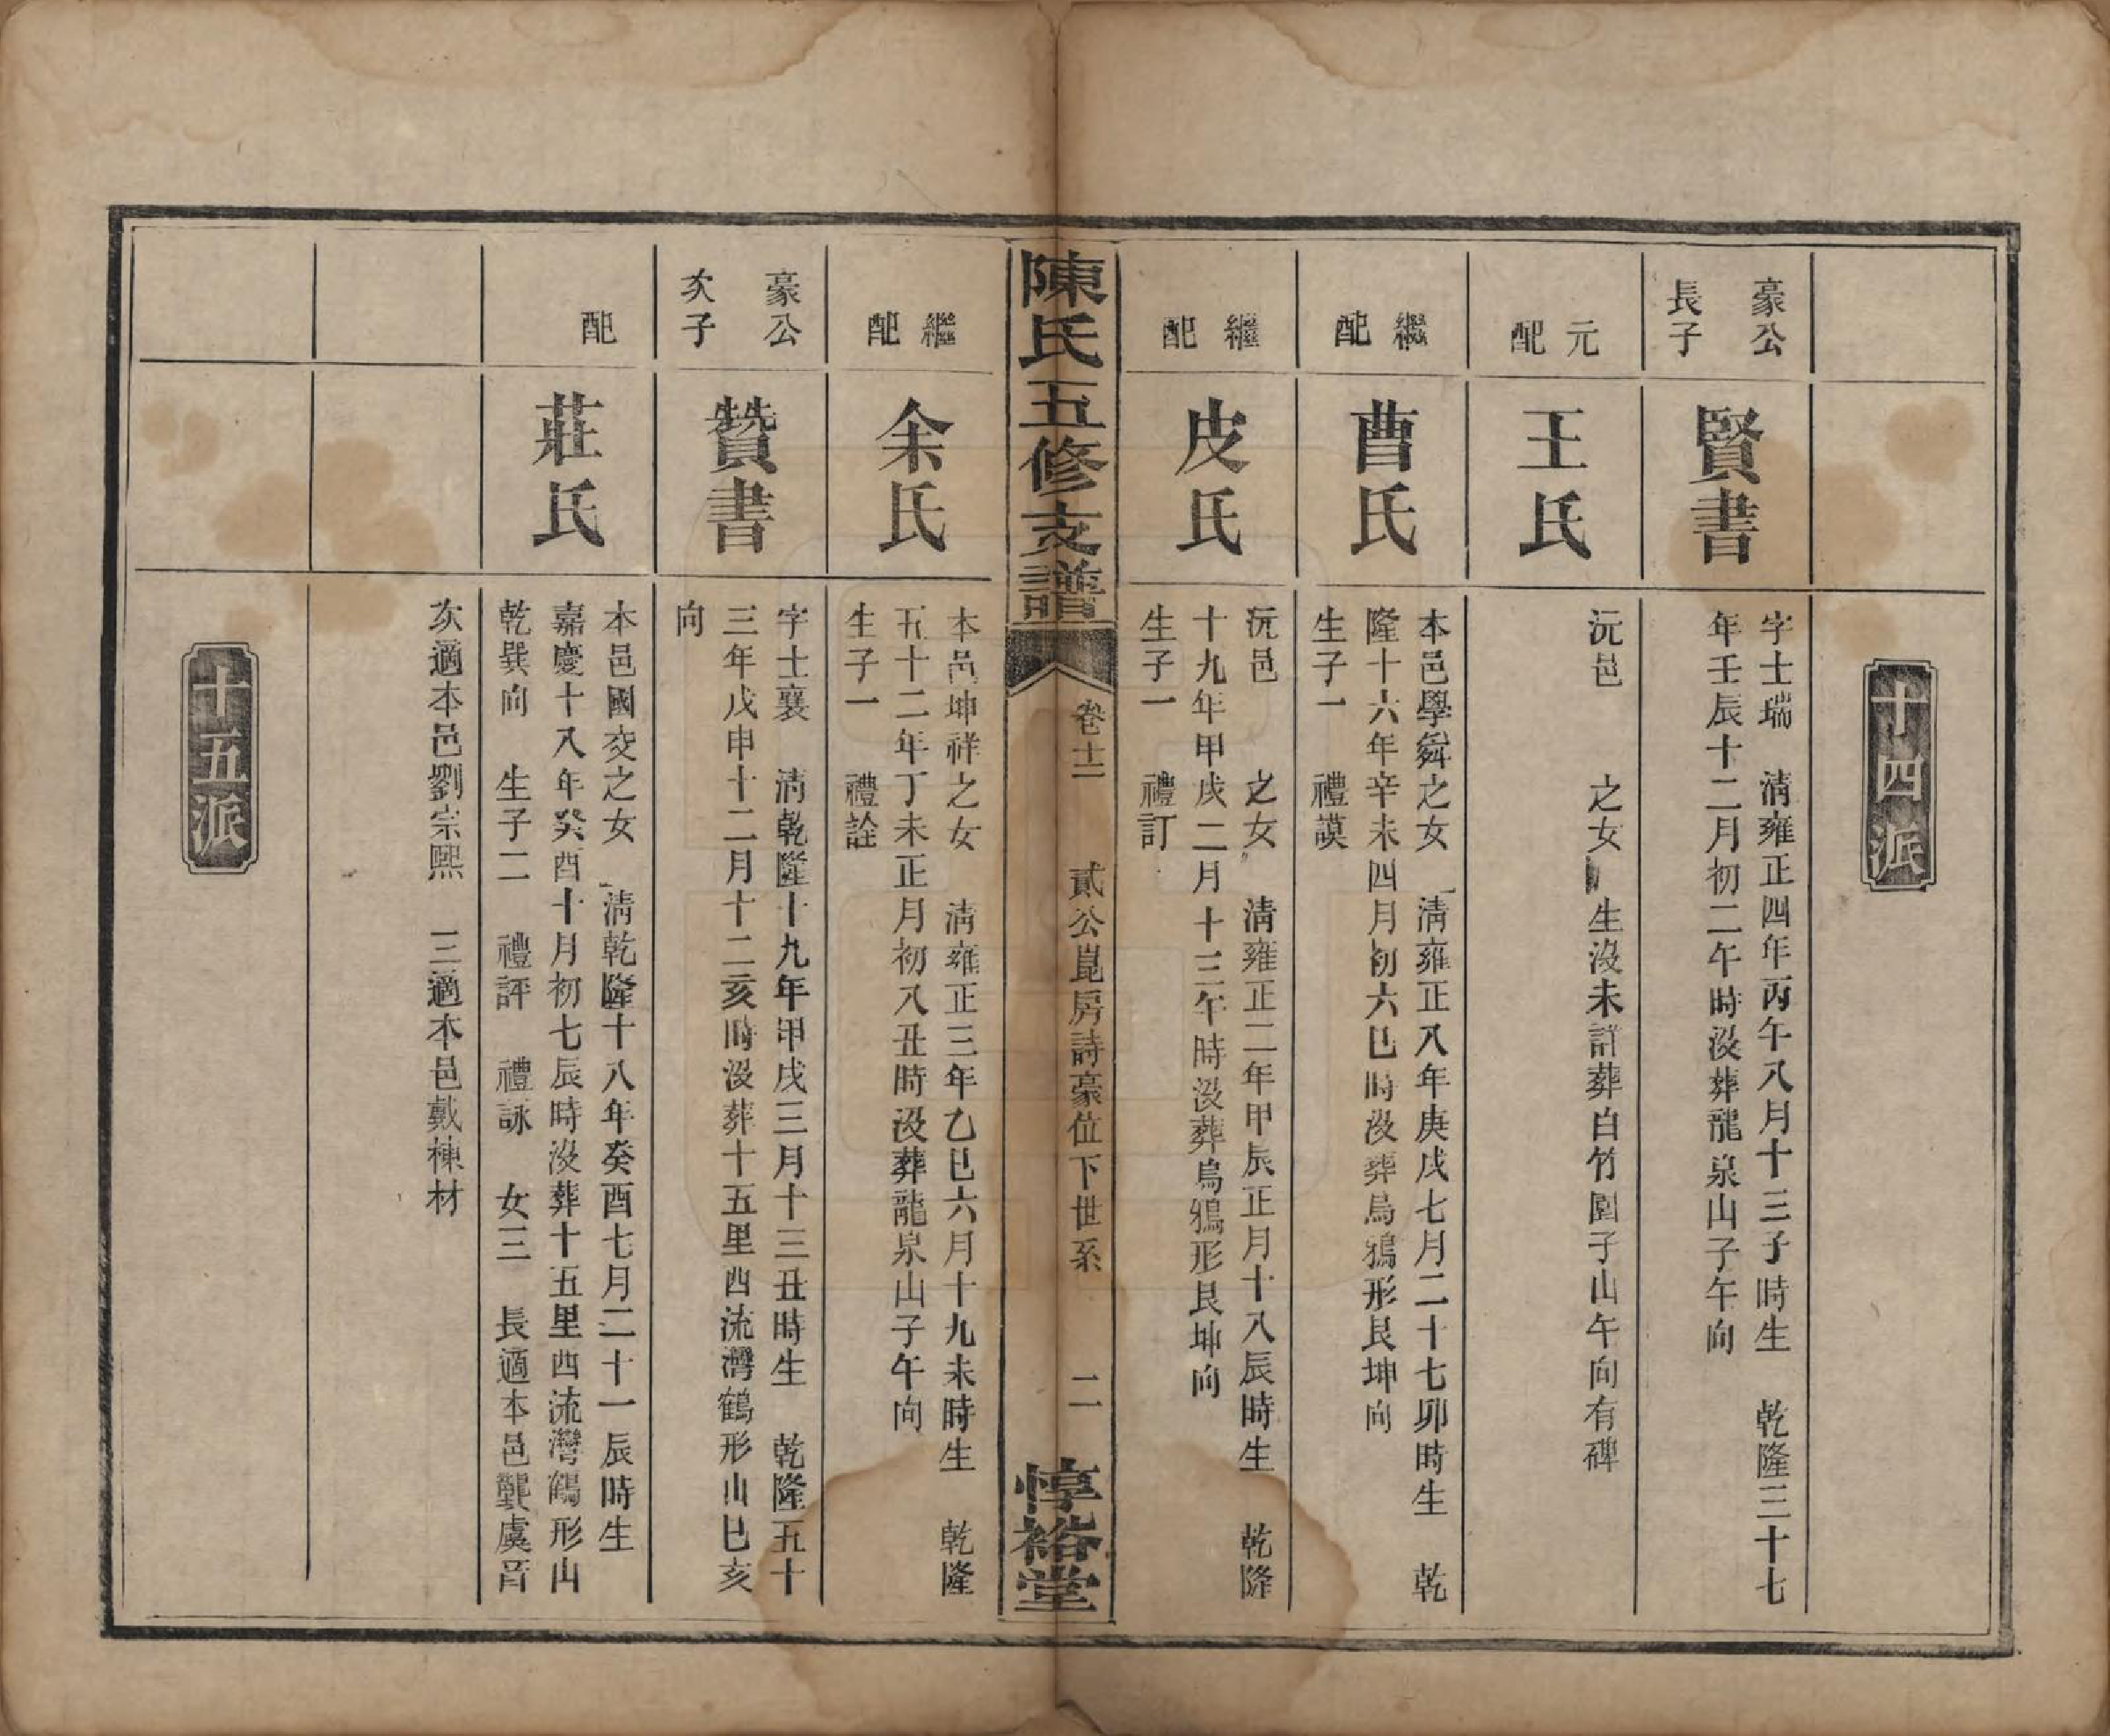 十四派
豪公
長子
賢書
字士瑞　清雍正四年丙午八月十三子時生　乾隆三十七
年壬辰十二月初二午時沒葬龍泉山子午向
元
配
王氏
沅邑　　之女　生沒未詳葬白竹園子山午向有碑
繼
配
曹氏
本邑學舜之女　清雍正八年庚戌七月二十七卯時生　乾
隆十六年辛未四月初六巳時沒葬烏鴉形艮坤向
生子一　禮謨
繼
配
皮氏
沅邑　　之女　清雍正二年甲辰正月十八辰時生　乾隆
十九年甲戌二月十三午時沒葬烏鴉形艮坤向
生子一　禮訂
陳氏五修支譜
卷十二　貳公崑房詩豪位下世系　二
惇裕堂
繼
配
余氏
本邑坤祥之女　清雍正三年乙巳六月十九未時生　乾隆
五十二年丁未正月初八丑時沒葬龍泉山子午向
生子一　禮詮
豪公
次子
贊書
字士襄　清乾隆十九年甲戌三月十三丑時生　乾隆五十
三年戊申十二月十二亥時沒葬十五里西流灣鶴形山巳亥
向
配
莊氏
本邑國交之女　清乾隆十八年癸酉七月二十一辰時生
嘉慶十八年癸酉十月初七辰時沒葬十五里西流灣鶴形山
乾巽向　生子二　禮評　禮詠　女三　長適本邑龔虞音
次適本邑劉宗熙　三適本邑戴棟材
十五派